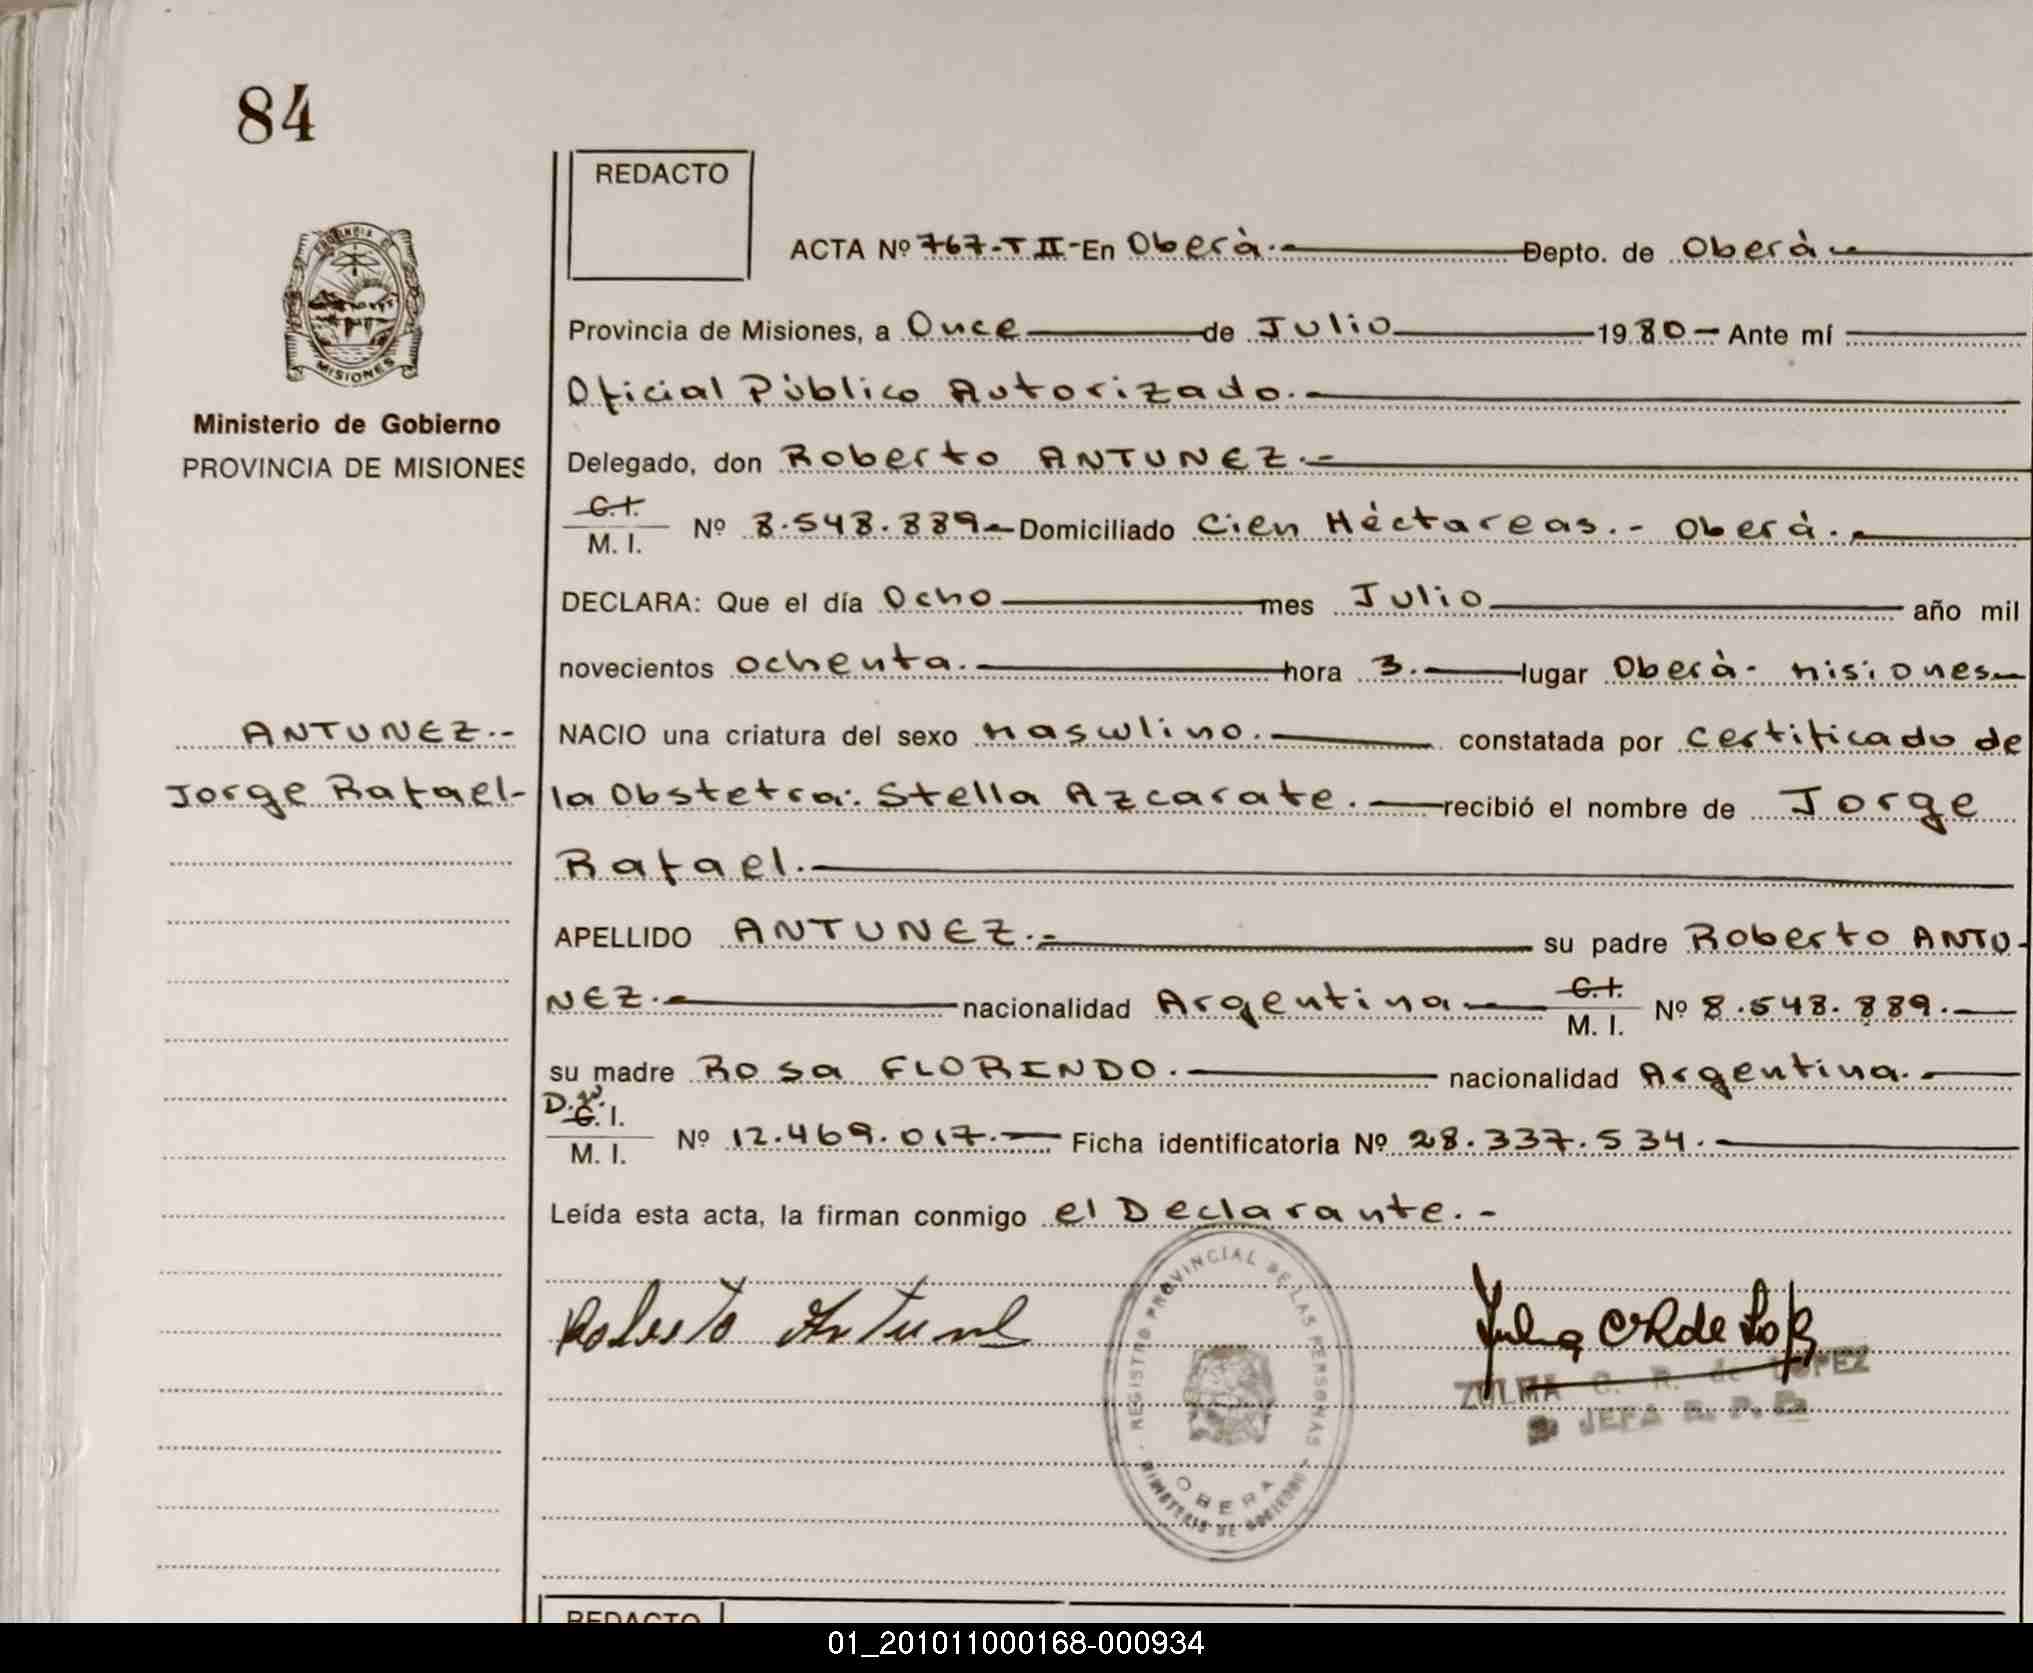 84
REDACTO
ACTA Nº 767-T II-En Oberà.- Depto. de Oberà.-
Provincia de Misiones, a Once de Julio 1980- Ante mí
Oficial Pùblico Autorizado.-
Delegado, don Roberto ANTUNEZ.-
C.I.
M. I. Nº 8.548.889.- Domiciliado Cien Hèctareas.- Oberà.-
DECLARA: Que el día Ocho mes Julio año mil
novecientos ochenta. hora 3. lugar Oberà- Misiones-
NACIO una criatura del sexo Masculino. constatada por certificado de
la Obstetra: Stella Azcarate. recibió el nombre de Jorge
Rafael.
APELLIDO ANTUNEZ.- su padre Roberto ANTU-
NEZ.- nacionalidad Argentina C.I.
M. I. Nº 8.548.889.
su madre Rosa FLORINDO. nacionalidad Argentina.-
D. C. I.
M. I. Nº 12.469.017.- Ficha identificatoria Nº 28.337.534.
Leída esta acta, la firman conmigo el Declarante.-
Roberto Antunez
ZULMA C. R. de LOPEZ
JEFA R. P. P.
REGISTRO PROVINCIAL DE LAS PERSONAS
OBERA
MINISTERIO DE GOBIERNO
PROVINCIA DE
MISIONES
Ministerio de Gobierno
PROVINCIA DE MISIONES
ANTUNEZ.-
Jorge Rafael-
REDACTO
01_201011000168-000934